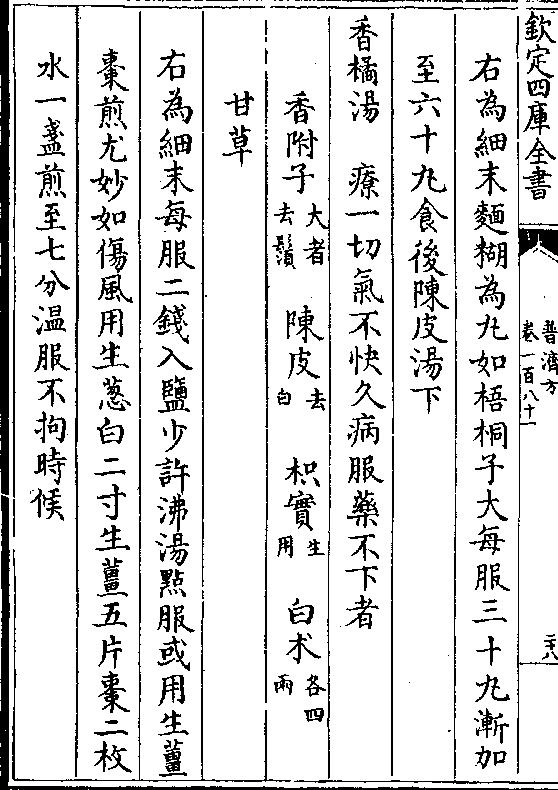 欽定四庫全書
普濟方
卷一百八十一
二十八
右為細末麵糊為丸如梧桐子大每服三十丸漸加
至六十丸食後陳皮湯下
香橘湯 療一切氣不快久病服藥不下者
香附子大者去鬚 陳皮去白 枳實生用 白术各四兩
甘草
右為細末每服二錢入鹽少許沸湯點服或用生薑
棗煎尤妙如傷風用生蔥白二寸生薑五片棗二枚
水一盞煎至七分温服不拘時候